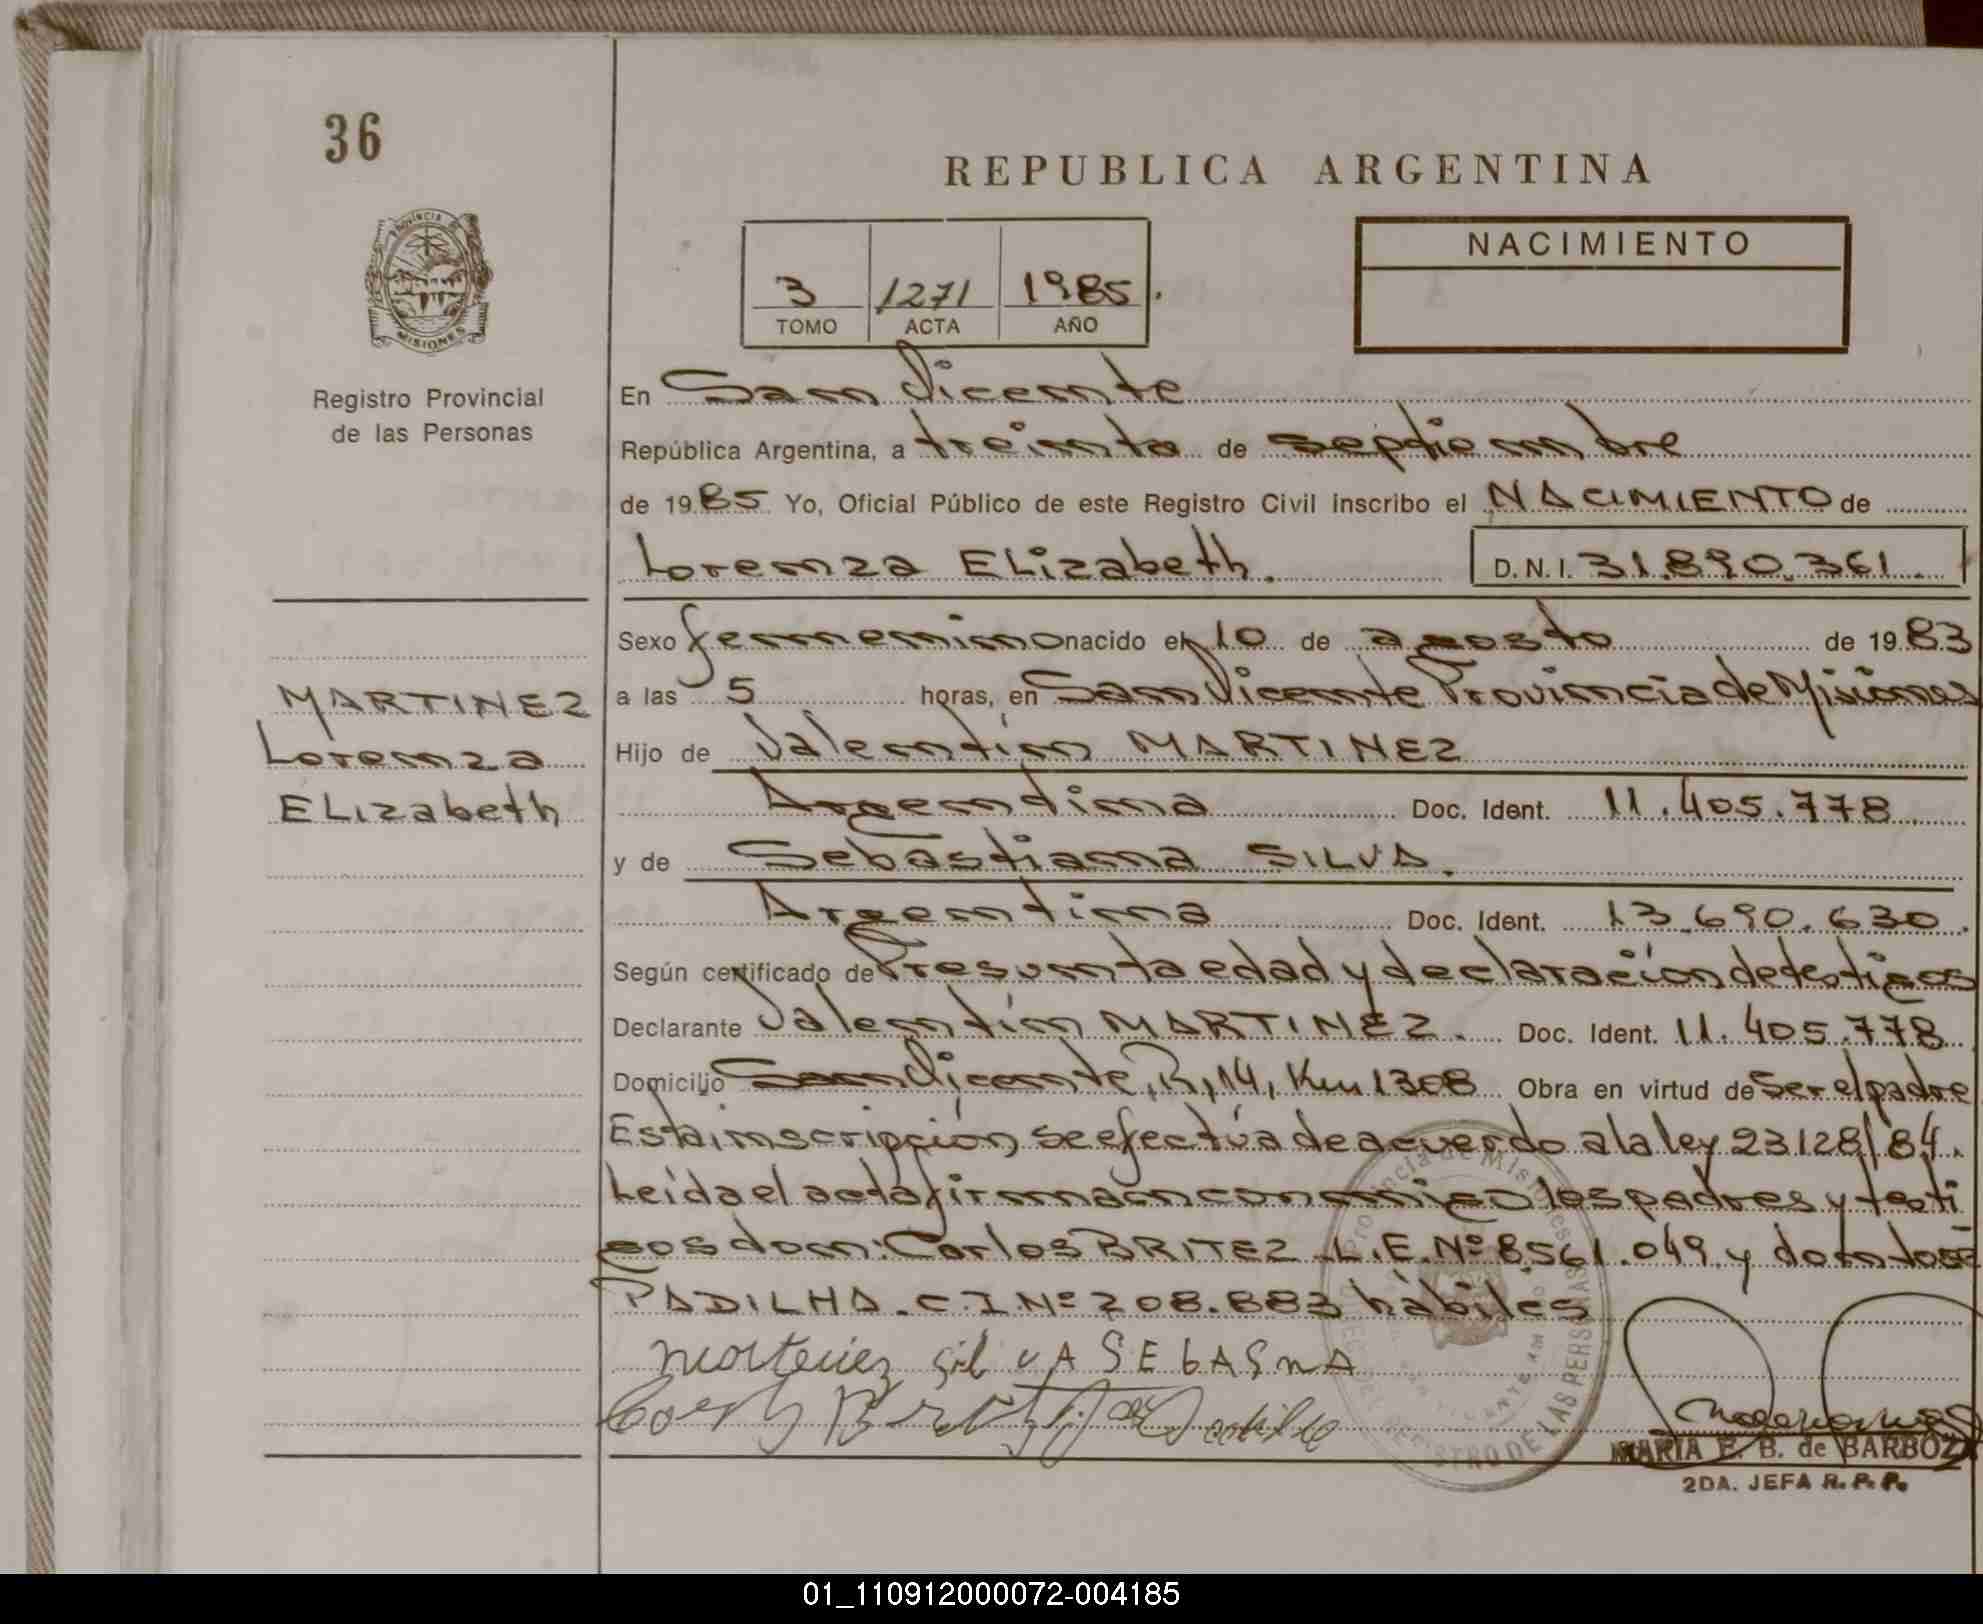 36
REPUBLICA ARGENTINA
PROVINCIA DE
MISIONES
Registro Provincial
de las Personas
3 1271 1985.
TOMO ACTA AÑO
NACIMIENTO
En San Vicente
República Argentina, a treinta de septiembre
de 1985 Yo, Oficial Público de este Registro Civil inscribo el NACIMIENTO de
Lorenza ELizabeth. D.N.I. 31.890.361.
Sexo femenino nacido el 10 de agosto de 1983
MARTINEZ
Lorenza
ELizabeth
a las 5 horas, en San Vicente Provincia de Misiones
Hijo de Valentín MARTINEZ
Argentina Doc. Ident. 11.405.778
y de Sebastiana SILVA.
Argentina Doc. Ident. 13.690.630.
Según certificado de Presunta edad y declaración de testigos
Declarante Valentín MARTINEZ. Doc. Ident. 11.405.778
Domicilio San Vicente, R, 14, Km 1308 Obra en virtud de Ser el padre
Esta inscripción, se efectúa de acuerdo a la ley 23.128/84.
Leída el acta firman conmigo los padres y testi
gos don: Carlos BRITEZ L.E.Nº 8.561.049. y don José
PADILHA. C.I Nº 208.883 hábiles
Martinez silvA SEbASnA
MARIA E. B. de BARBOZA
2DA. JEFA R.P.P.
01_110912000072-004185